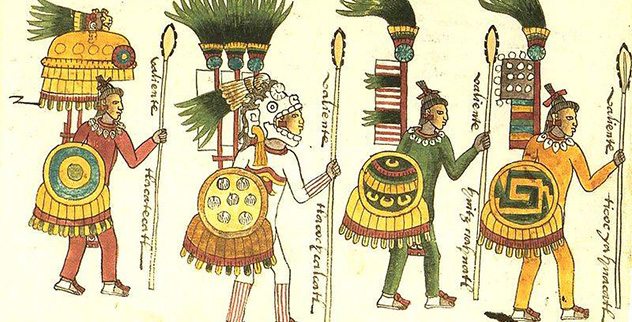 valiente
tlacatecatl
valiente
tlacochcalcatl
valiente
valiente
ticocyahuacatl